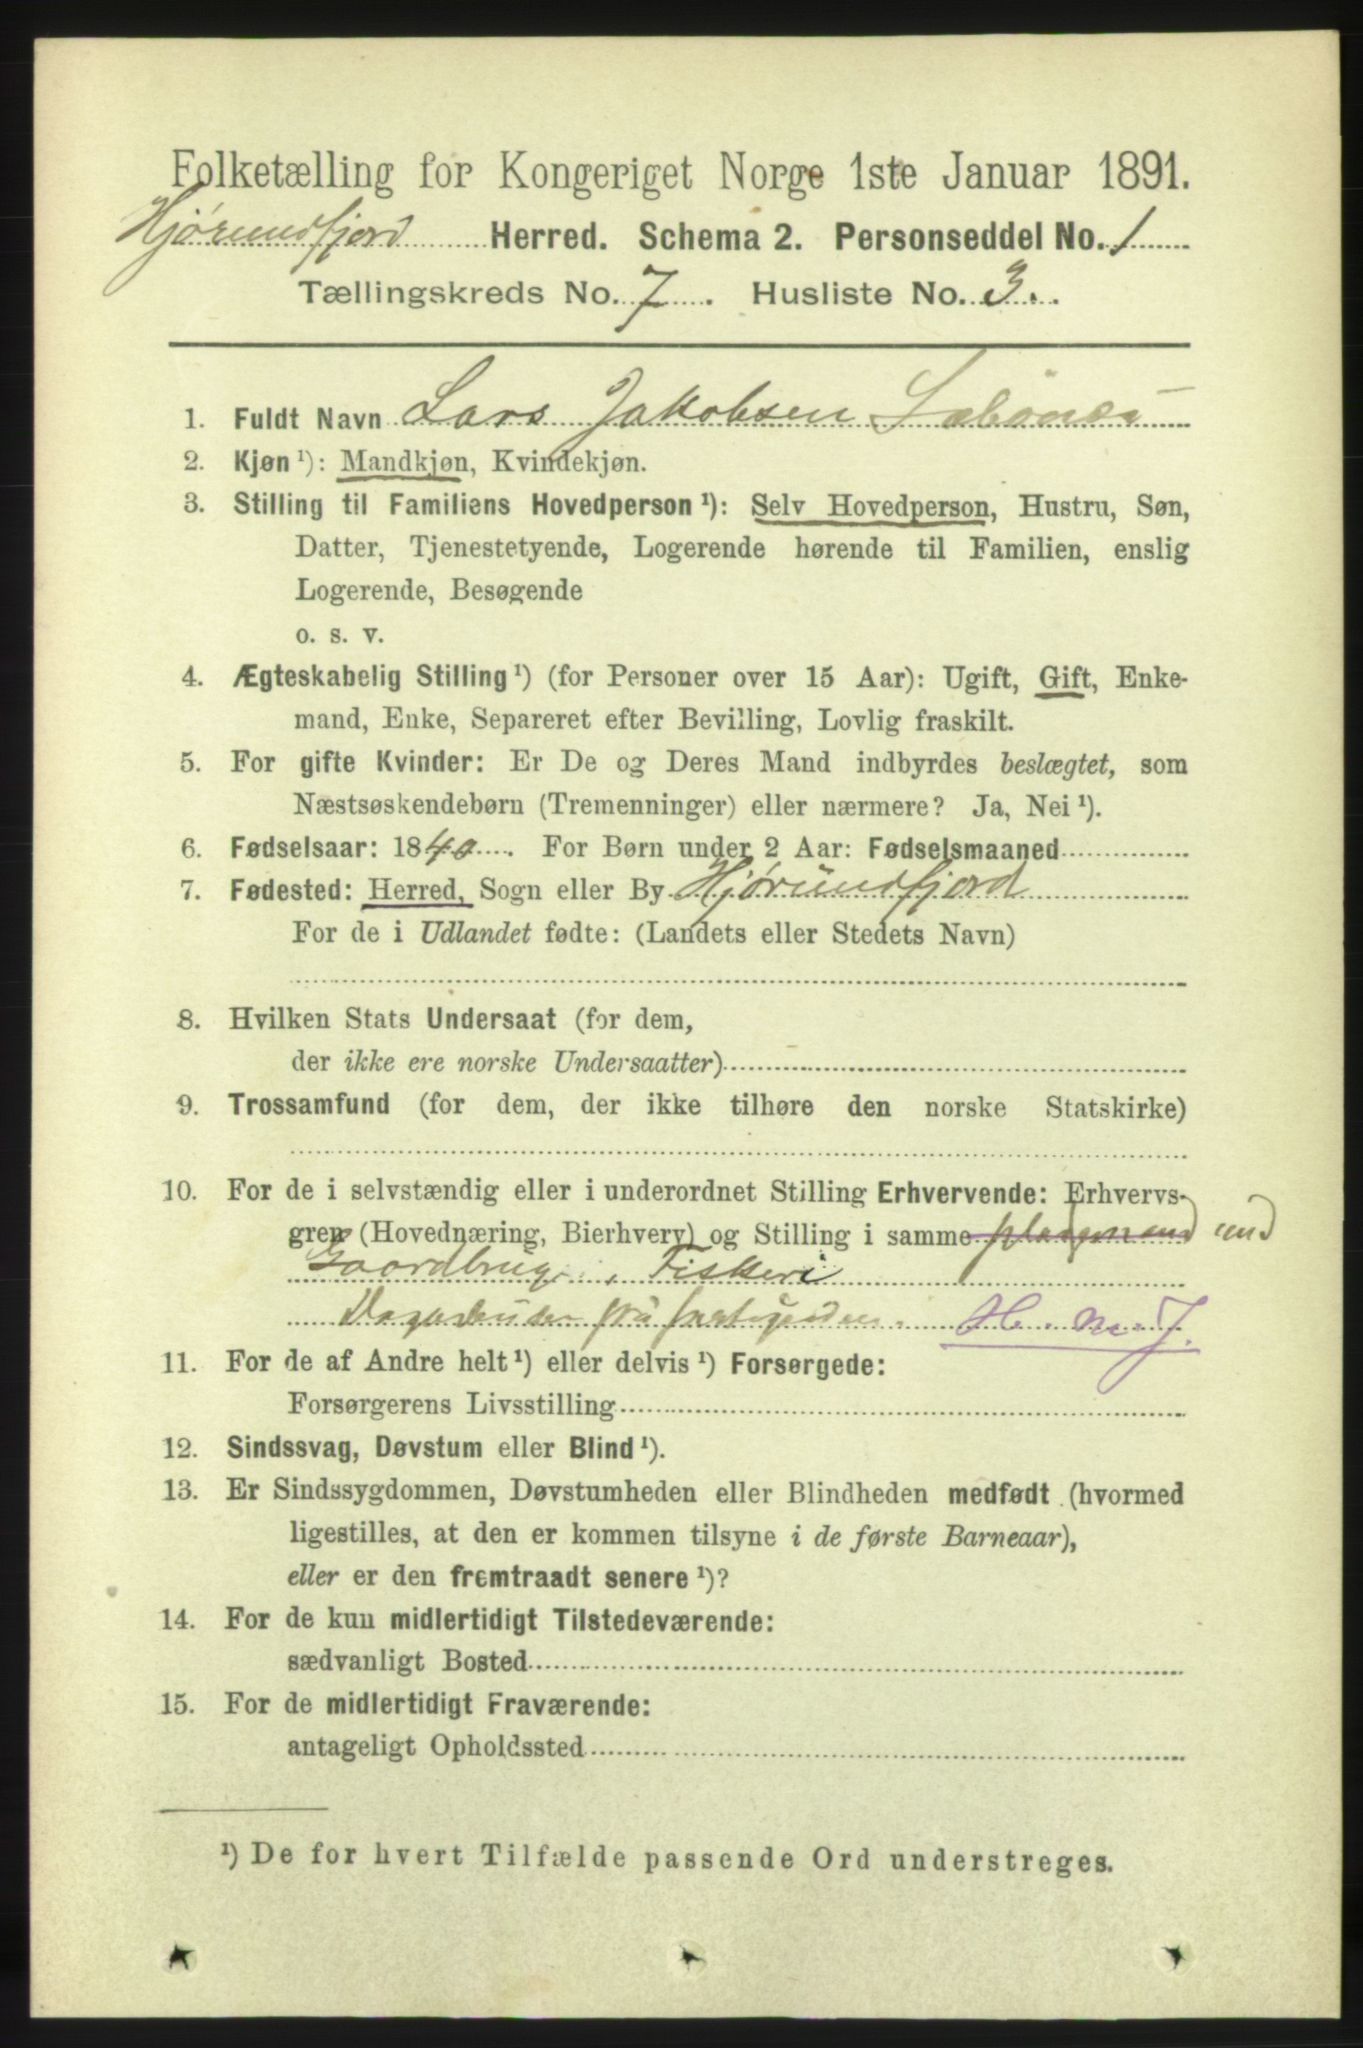 Folketælling for Kongeriget Norge 1ste Januar 1891.
Hjørundfjord Herred. Schema 2. Personseddel No. 1
Tællingskreds No. 7. Husliste No. 3.
1. Fuldt Navn Lars Jakobsen
2. Kjøn ¹): Mandkjøn, Kvindekjøn.
3. Stilling til Familiens Hovedperson ¹): Selv Hovedperson, Hustru, Søn,
Datter, Tjenestetyende, Logerende hørende til Familien, enslig
Logerende, Besøgende
o. s. v.
4. Ægteskabelig Stilling ¹) (for Personer over 15 Aar): Ugift, Gift, Enke-
mand, Enke, Separeret efter Bevilling, Lovlig fraskilt.
5. For gifte Kvinder: Er De og Deres Mand indbyrdes beslægtet, som
Næstsøskendebørn (Tremenninger) eller nærmere? Ja, Nei ¹).
6. Fødselsaar: 1840. For Børn under 2 Aar: Fødselsmaaned
7. Fødested: Herred, Sogn eller By Hjørundfjord
For de i Udlandet fødte: (Landets eller Stedets Navn)
8. Hvilken Stats Undersaat (for dem,
der ikke ere norske Undersaatter)
9. Trossamfund (for dem, der ikke tilhøre den norske Statskirke)
10. For de i selvstændig eller i underordnet Stilling Erhvervende: Erhvervs-
gren (Hovednæring, Bierhverv) og Stilling i samme
Gaardbrug, Fiskeri
H. m. J.
11. For de af Andre helt ¹) eller delvis ¹) Forsørgede:
Forsørgerens Livsstilling
12. Sindssvag, Døvstum eller Blind ¹).
13. Er Sindssygdommen, Døvstumheden eller Blindheden medfødt (hvormed
ligestilles, at den er kommen tilsyne i de første Barneaar),
eller er den fremtraadt senere ¹)?
14. For de kun midlertidigt Tilstedeværende:
sædvanligt Bosted
15. For de midlertidigt Fraværende:
antageligt Opholdssted
¹) De for hvert Tilfælde passende Ord understreges.